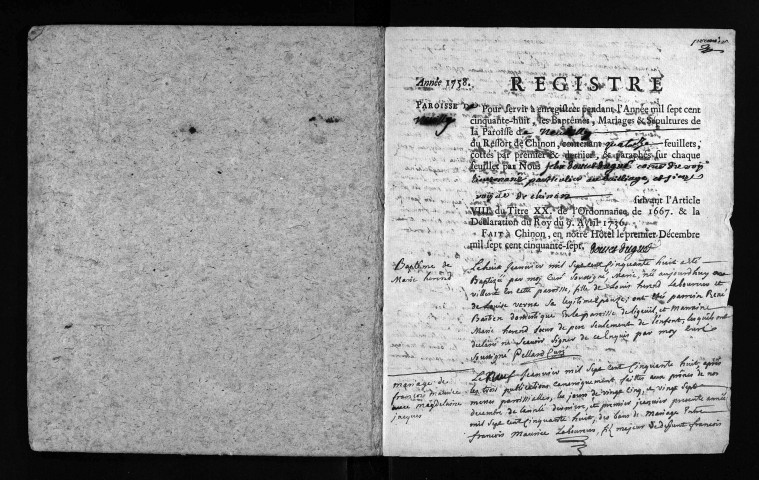 premier
Année 1758.
REGISTRE
PAROISSE De
Pour servir à enregistrer pendant l'Année mil sept cent
cinquante-huit, les Baptêmes, Mariages & Sépultures de
la Paroisse de
du Ressort de Chinon, contenant quatorze feuillets,
cottés par premier & dernier, & paraphés sur chaque
feuillet par Nous
lieutenant particulier au bailliage, et siege
royal de chinon suivant l'Article
VIII. du Titre XX. de l'Ordonnance de 1667. & la
Déclaration du Roy du 9. Avril 1736.
FAIT à Chinon, en nôtre Hôtel le premier Décembre
mil sept cent cinquante-sept.
Baptême de
Marie herend
Le huit Jeanvier mil Sept cent Cinquante huit a été
Baptisée par moy Curé Soussigné Marie, née aujourdhuy au
village en cette parroisse, fille de Louis herend Laboureur et
de Louise verna Sa legitime épouse; ont été parrain René
domestique en la parroisse de ligueil, et Marraine
Marie herend Soeur de pere Seulement de l'enfant, lesquels ont
declaré ne Scavoir Signer de ce Enquis par moy Curé
Soussigné Pellard Curé
mariage de
françois maurice
avec magdelaine
jacques
Le Neuf Jeanvier mil Sept cent Cinquante huit, après
les trois publications canoniquement faittes aux prônes de nos
messes parroissialles, les jours de vingt cinq, et vingt Sept
decembre de l'année derniere, et premier janvier presente année
mil Sept cent Cinquante huit, des bans de Mariage Entre
françois Maurice Laboureur, fils majeur de deffunt françois